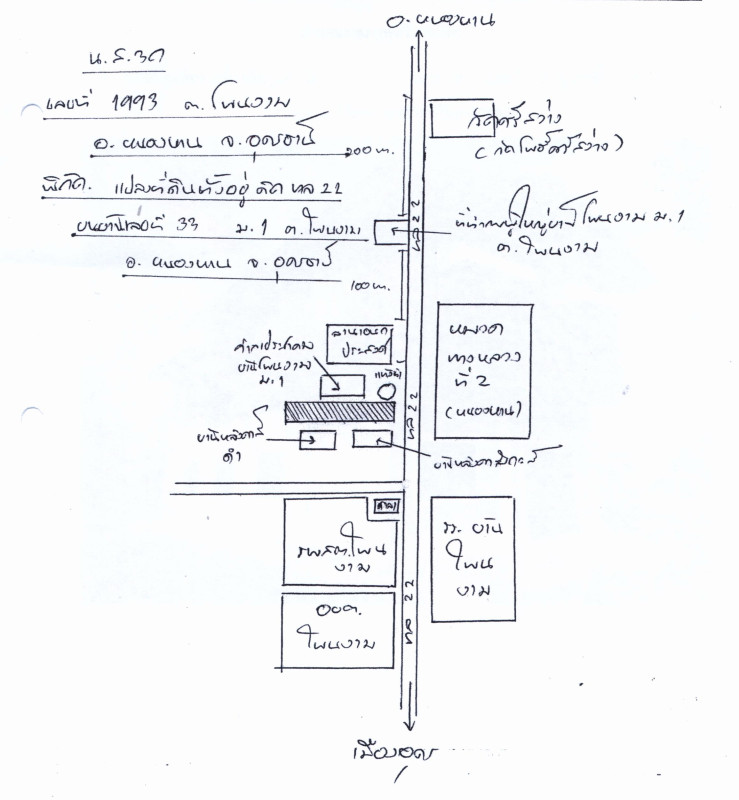 อ. หนองหาน
น.ส.3ก
เลขที่ 1993 ต. โพนงาม
อ. หนองหาน จ. อุดรธานี
200 ม.
พิกัด. แปลงที่ดินตั้งอยู่ ติด ทล 22
บ้านเลขที่ 33 ม.1 ต. โพนงาม
อ. หนองหาน จ. อุดรธานี
100 ม.
วัดศรีสว่าง
(วัดโพธิ์ศรีสว่าง)
ทล 22
ที่ทำการผู้ใหญ่บ้าน โพนงาม ม.1
ต. โพนงาม
ลานเอนก
ประสงค์
ศาลาประชาคม
บ้านโพนงาม
ม.1
แท้งน้ำ
หมวด
ทางหลวง
ที่ 2
(หนองหาน)
ทล 22
ศาลา
รพสต. โพน
งาม
รร. บ้าน
โพน
งาม
อบต.
โพนงาม
ทล 22
เมืองอุดร